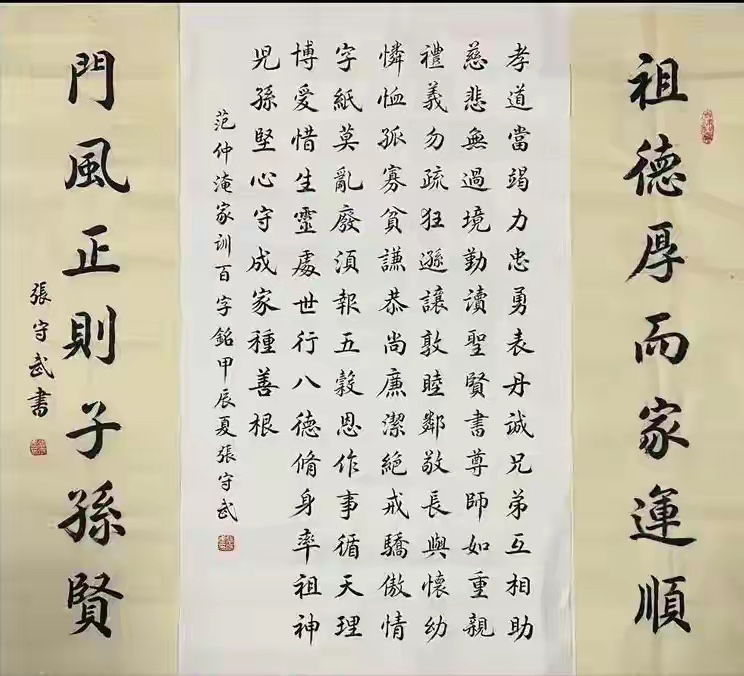 祖德厚而家運順
孝道當竭力忠勇表丹誠兄弟互相助
慈悲無過境勤讀聖賢書尊師如重親
禮義勿疏狂遜讓敦睦鄰敬長與懷幼
憐恤孤寡貧謙恭尚廉潔絕戒驕傲情
字紙莫亂廢須報五穀恩作事循天理
博愛惜生靈處世行八德脩身率祖神
児孫堅心守成家種善根
范仲淹家训百字銘甲辰夏張守武
門風正則子孫賢
張守武書